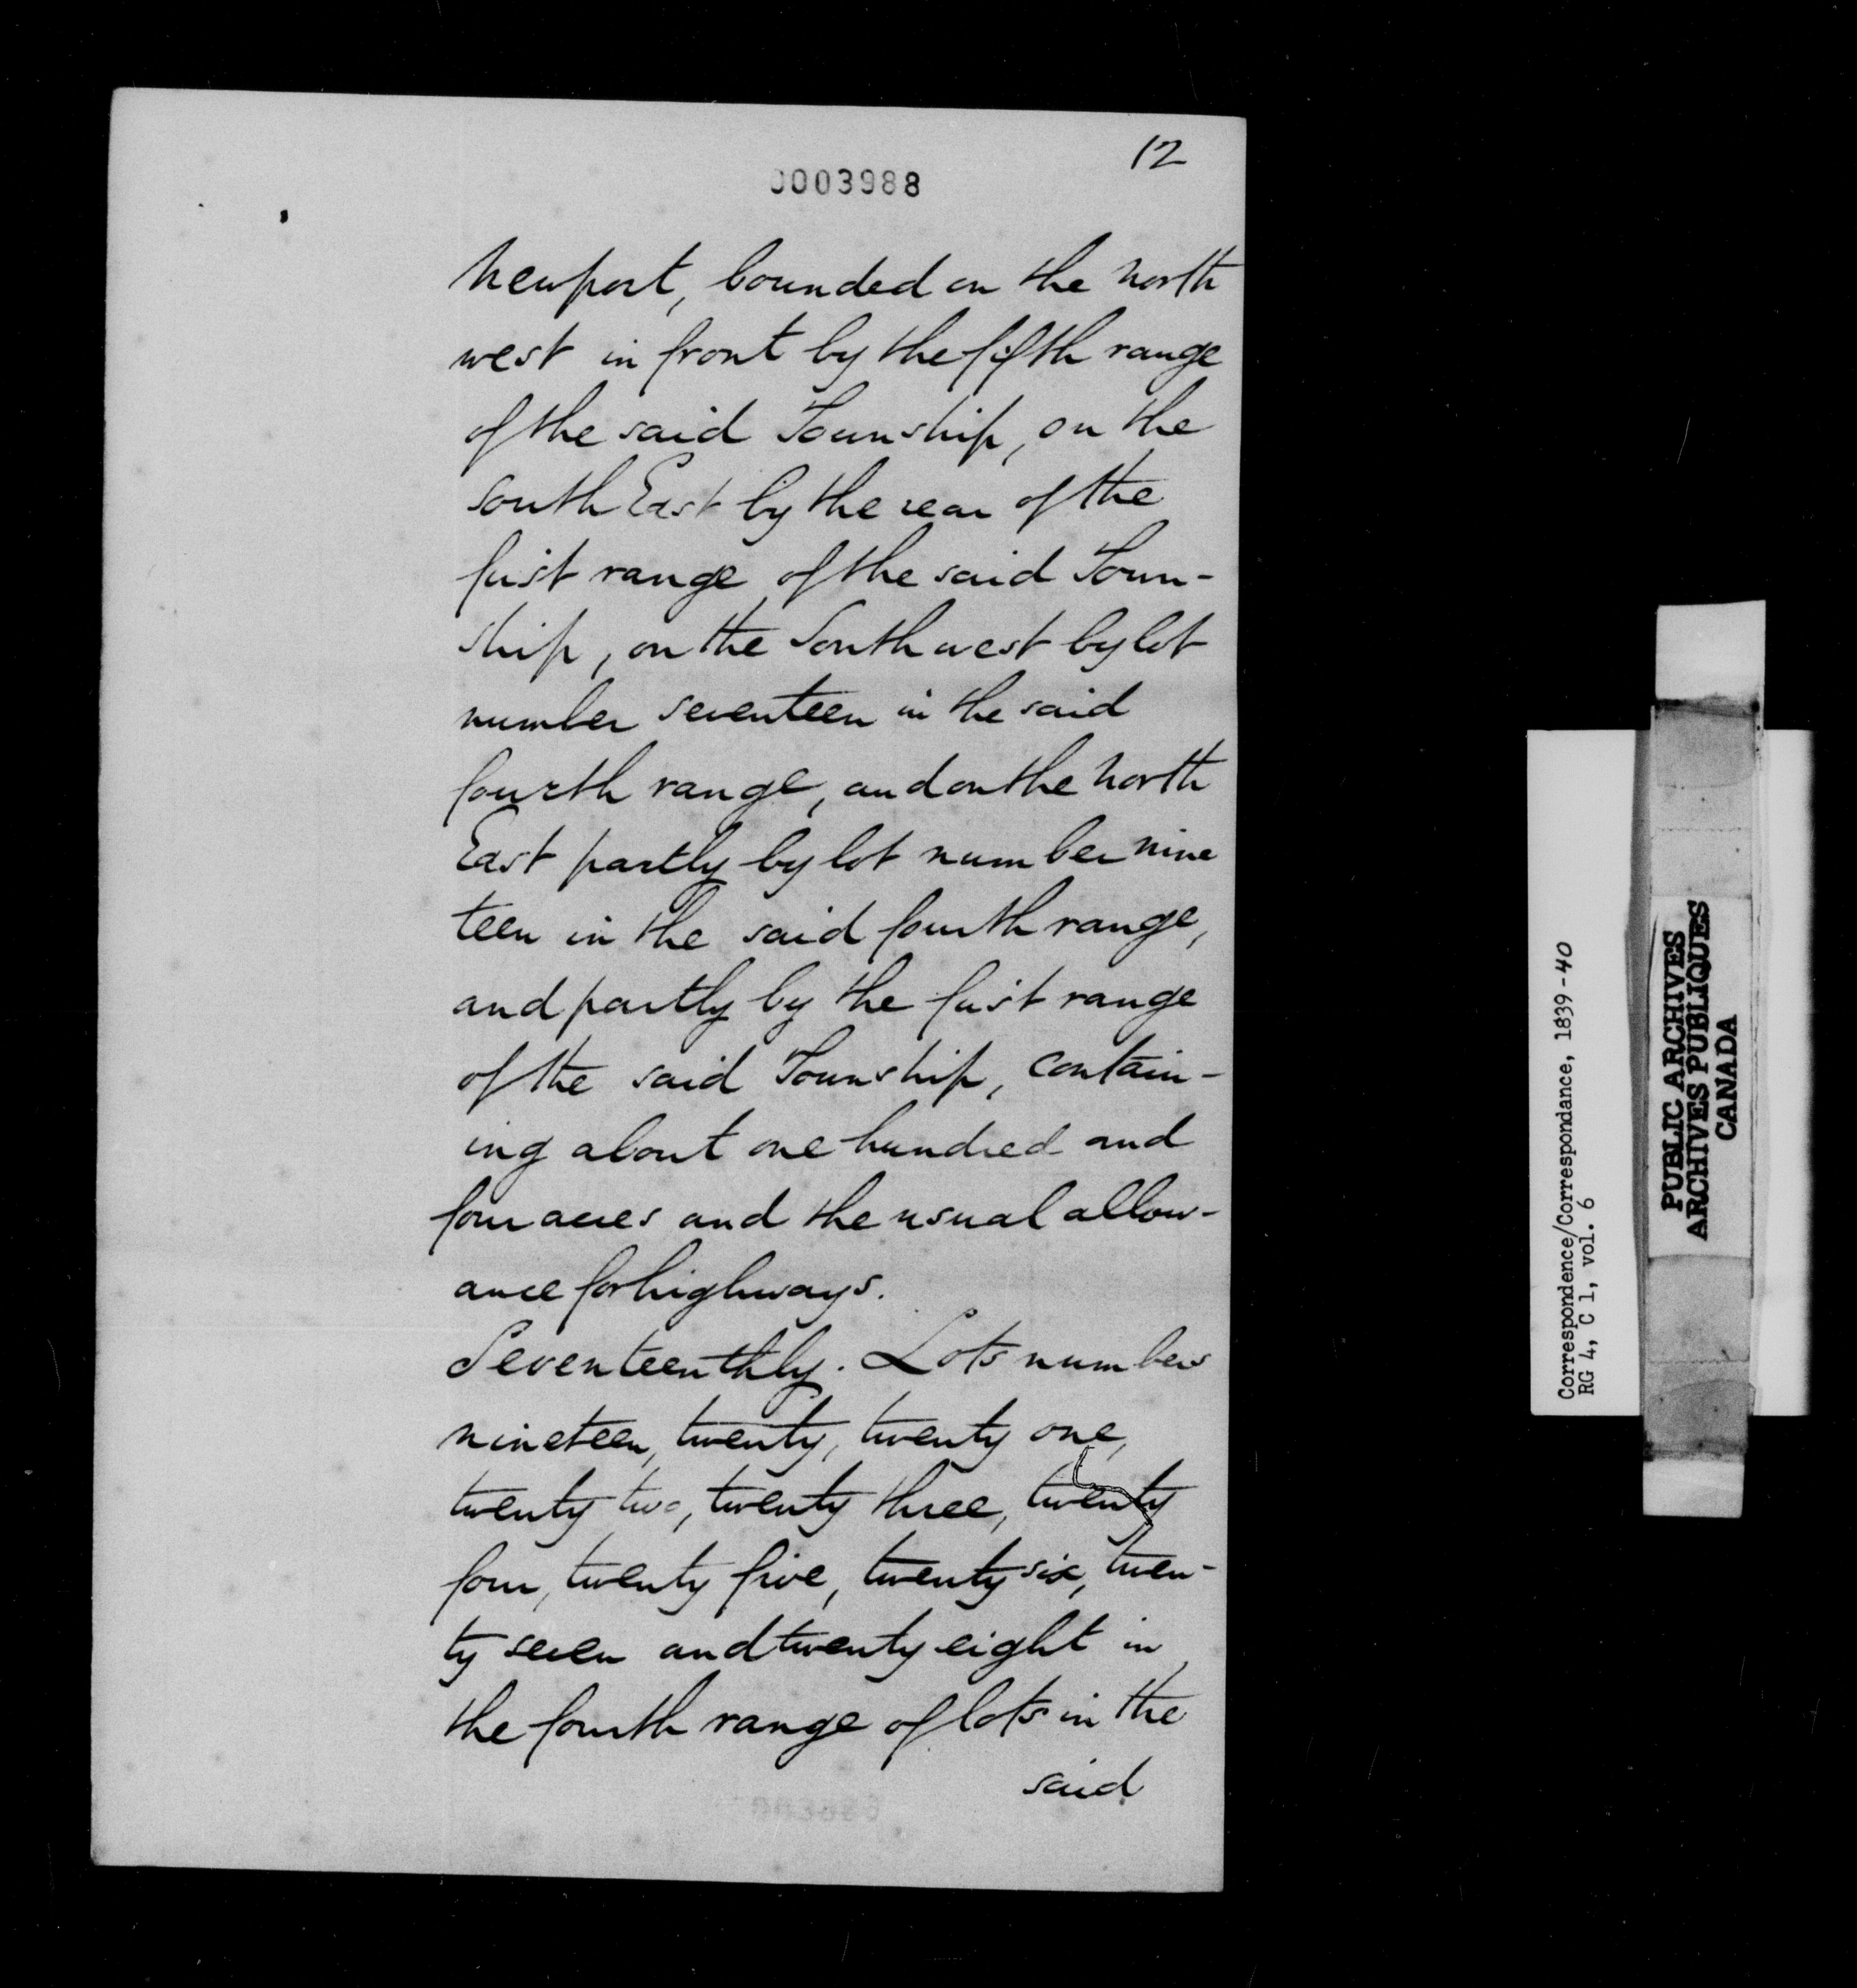 12
0003988
Newport, bounded on the North
west in front by the fifth range
of the said Township, on the
South East by the rear of the
first range of the said Town-
ship, on the South west by lot
number seventeen in the said
fourth range, and on the North
East partly by lot number nine
teen in the said fourth range,
and partly by the first range
of the said Township, contain-
ing about one hundred and
four acres and the usual allow-
ance for highways.
Seventeenthly. Lots numbers
nineteen, twenty, twenty one,
twenty two, twenty three, twenty
four, twenty five, twenty six, twen-
ty seven and twenty eight in
the fourth range of lots in the
said
Correspondence/Correspondance, 1839-40
RG 4, C 1, vol. 6
PUBLIC ARCHIVES
ARCHIVES PUBLIQUES
CANADA